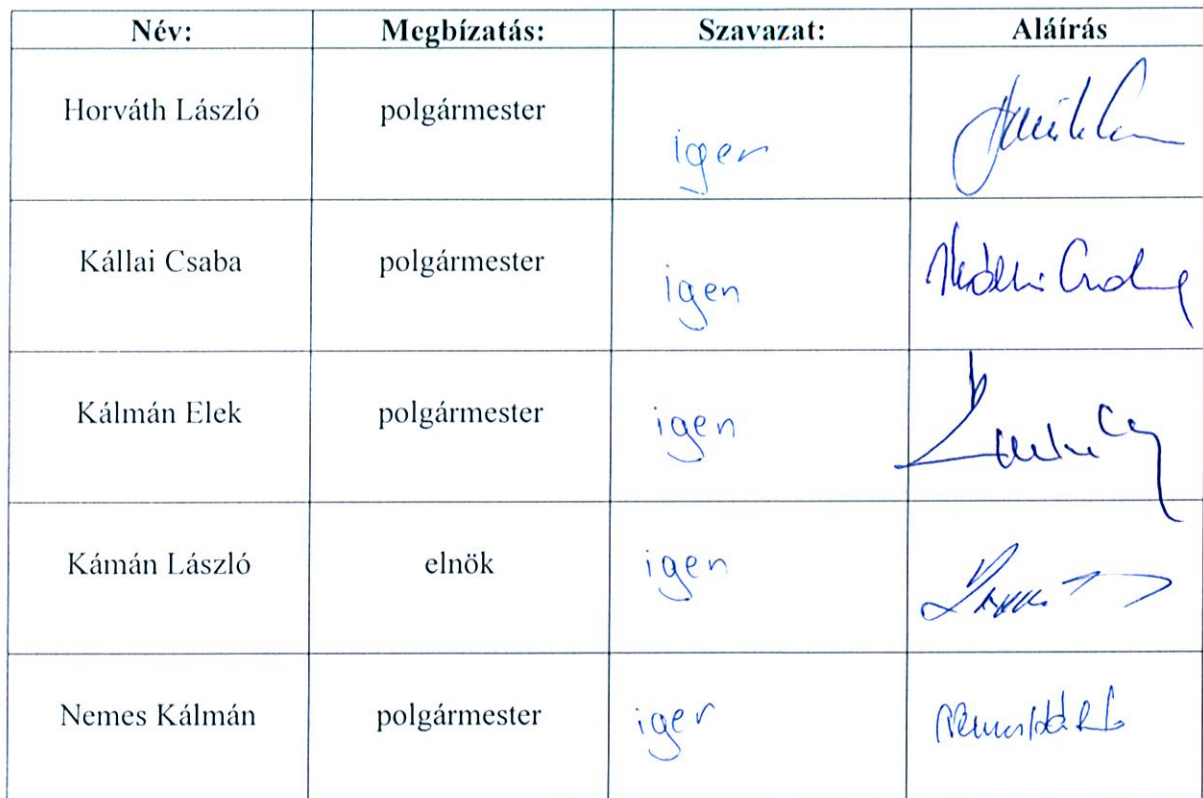 Név: Megbízatás: Szavazat: Aláírás
Horváth László polgármester igen
Kállai Csaba polgármester igen
Kálmán Elek polgármester igen
Kámán László elnök igen
Nemes Kálmán polgármester igen